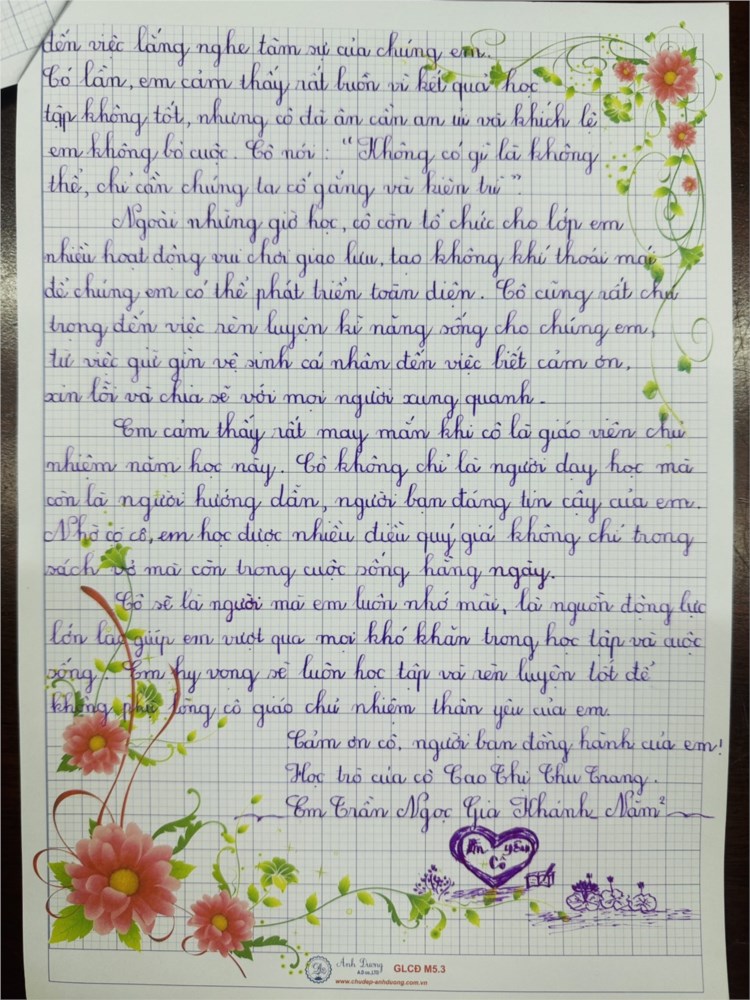 đến việc lắng nghe tâm sự của chúng em.
Có lần, em cảm thấy rất buồn vì kết quả học
tập không tốt, nhưng cô đã ân cần an ủi và khích lệ
em không bỏ cuộc. Cô nói: "Không có gì là không
thể, chỉ cần chúng ta cố gắng và kiên trì".
Ngoài những giờ học, cô còn tổ chức cho lớp em
nhiều hoạt động vui chơi giao lưu, tạo không khí thoải mái
để chúng em có thể phát triển toàn diện. Cô cũng rất chú
trọng đến việc rèn luyện kĩ năng sống cho chúng em,
từ việc giữ gìn vệ sinh cá nhân đến việc biết cảm ơn,
xin lỗi và chia sẻ với mọi người xung quanh.
Em cảm thấy rất may mắn khi cô là giáo viên chủ
nhiệm năm học này. Cô không chỉ là người dạy học mà
còn là người hướng dẫn, người bạn đáng tin cậy của em.
Nhờ có cô, em học được nhiều điều quý giá không chỉ trong
sách vở mà còn trong cuộc sống hằng ngày.
Cô sẽ là người mà em luôn nhớ mãi, là nguồn động lực
lớn lao giúp em vượt qua mọi khó khăn trong học tập và cuộc
sống. Em hy vọng sẽ luôn học tập và rèn luyện tốt để
không phụ lòng cô giáo chủ nhiệm thân yêu của em.
Cảm ơn cô, người bạn đồng hành của em!
Học trò của cô Cao Thị Thu Trang.
Em Trần Ngọc Gia Khánh Năm²
yêu
Cô
Ánh Dương
A.D co.,LTD
GLCĐ M5.3
www.chudep-anhduong.com.vn